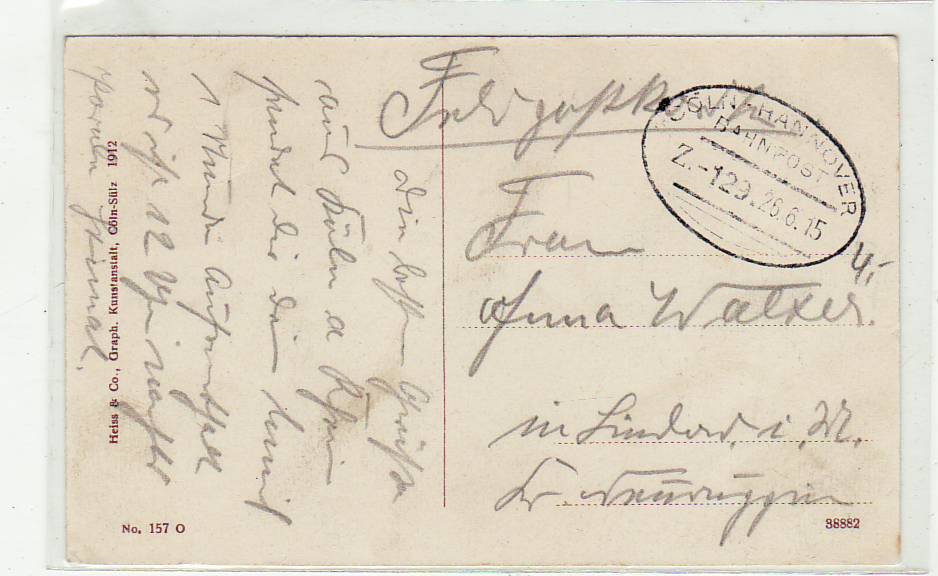 Feldpostkarte
CÖLN-HANNOVER
BAHNPOST
Z.-129. 26.6.15
Frau
4,-
Anna Walter.
in Lindow. i. M.
Kr. Neuruppin
Die besten Grüße
aus Köln a Rhein
sendet dir dein
1 Stunde Aufenthalt
12 Uhr nachts
Heiss & Co., Graph. Kunstanstalt, Cöln-Sülz 1912
No. 157 O
38882